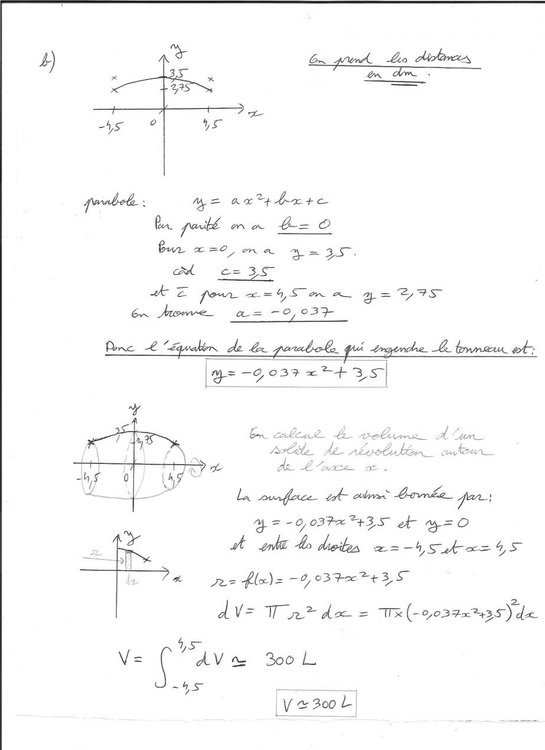 b)
On prend les distances
en dm.
y
3,5
2,75
-4,5 0 4,5 x
parabole: y = ax²+bx+c
Par parité on a b = 0
Pour x=0, on a y = 3,5.
càd c = 3,5
et c̄ pour x=4,5 on a y = 2,75
On trouve a = -0,037
Donc l'équation de la parabole qui engendre le tonneau est:
y = -0,037x² + 3,5
y
3,5
2,75
-4,5 0 4,5 x
On calcule le volume d'un
solide de révolution autour
de l'axe x.
La surface est ainsi bornée par:
y = -0,037x²+3,5 et y=0
et entre les droites x=-4,5 et x=4,5
y
r
dx
x
r = f(x) = -0,037x²+3,5
dV = π r² dx = π×(-0,037x²+3,5)² dx
V = ∫_{-4,5}^{4,5} dV ≃ 300 L
V ≃ 300 L